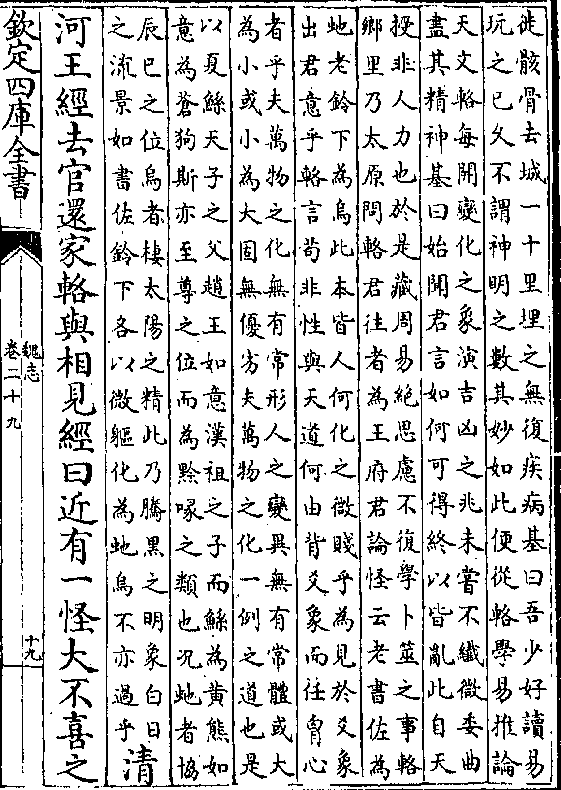 徙骸骨去城一十里埋之無復疾病基曰吾少好讀易
玩之已久不謂神明之數其妙如此便從輅學易推論
天文輅每開變化之象演吉凶之兆未嘗不纖微委曲
盡其精神基曰始聞君言如何可得終以皆亂此自天
授非人力也於是藏周易絕思慮不復學卜筮之事輅
鄉里乃太原問輅君往者為王府君論怪云老書佐為
虵老鈴下為烏此本皆人何化之微賤乎為見於爻象
出君意乎輅言苟非性與天道何由背爻象而任胷心
者乎夫萬物之化無有常形人之變異無有常體或大
為小或小為大固無優劣夫萬物之化一例之道也是
以夏鯀天子之父趙王如意漢祖之子而鯀為黃熊如
意為蒼狗斯亦至尊之位而為黔喙之類也况虵者協
辰巳之位烏者棲太陽之精此乃騰黑之明象白日
之流景如書佐鈴下各以微軀化為虵烏不亦過乎
清
河王經去官還家輅與相見經曰近有一怪大不喜之
欽定四庫全書
魏志
卷二十九
十九